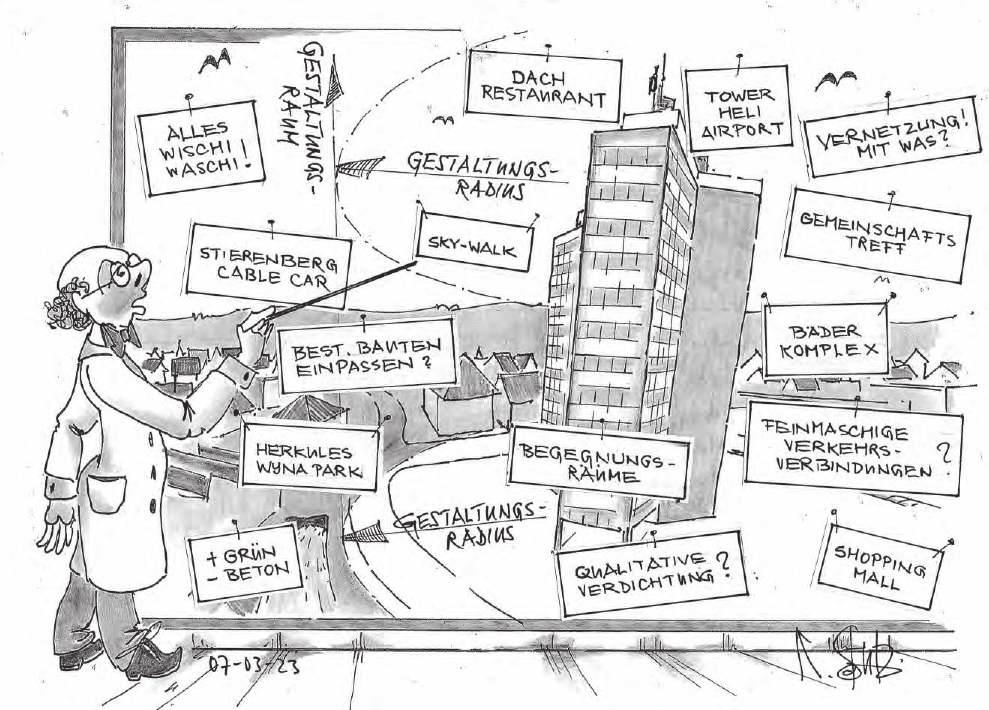 GESTALTUNGS-
RAUM
DACH
RESTAURANT
TOWER
HELI
AIRPORT
VERNETZUNG!
MIT WAS?
ALLES
WISCHI
WASCHI!
GESTALTUNGS-
RADIUS
GEMEINSCHAFTS
TREFF
STIERENBERG
CABLE CAR
SKY-WALK
BÄDER
KOMPLEX
BEST. BAUTEN
EINPASSEN?
FEINMASCHIGE
VERKEHRS-
VERBINDUNGEN?
HERKULES
WYNA PARK
BEGEGNUNGS-
RÄUME
GESTALTUNGS-
RADIUS
+ GRÜN
- BETON
QUALITATIVE
VERDICHTUNG?
SHOPPING
MALL
07-03-23